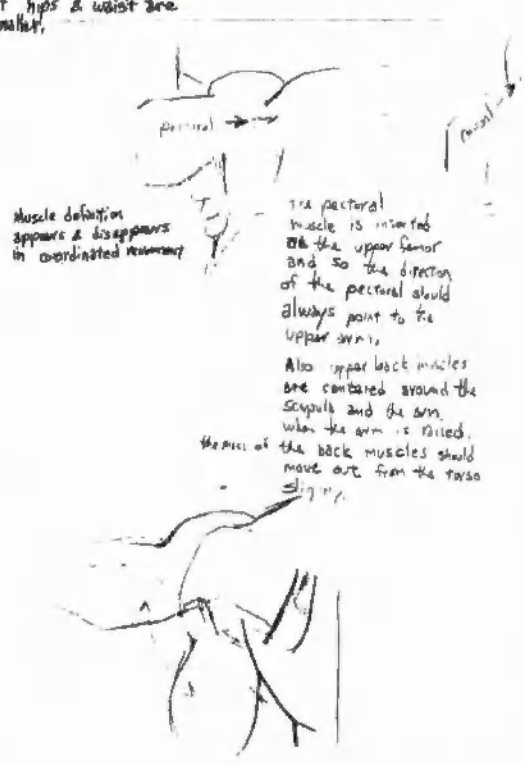 hips & waist are
smaller.
pectoral
Muscle definition
appears & disappears
in coordinated movement
The pectoral
muscle is inserted
at the upper femor
and so the direction
of the pectoral should
always point to the
upper arm.
Also upper back muscles
are centared around the
scapula and the arm.
when the arm is raised.
the mass of the back muscles should
move out from the torso
slightly.